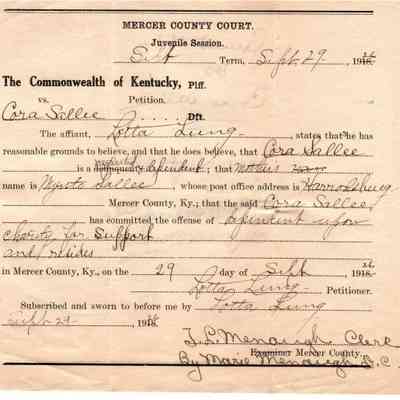 MERCER COUNTY COURT.
Juvenile Session.
Sept Term, Sept. 29, 191
The Commonwealth of Kentucky, Plff.
vs. Petition.
Cora Sallee Dft.
The affiant, Lotta Lung, states that he has
reasonable grounds to believe, and that he does believe, that Cora Sallee
is a delinquent, neglected dependent; that Mothers
name is Sallee, whose post office address is Harrodsburg
Mercer County, Ky.; that the said Cora Sallee
has committed the offense of dependent upon
charity for Support
and resides
in Mercer County, Ky., on the 29 day of Sept 191
Lotta Lung Petitioner.
Subscribed and sworn to before me by Lotta Lung
Sept 29 191
T. L. Menaugh Clerk
Examiner Mercer County.
By Marie Menaugh D.C.